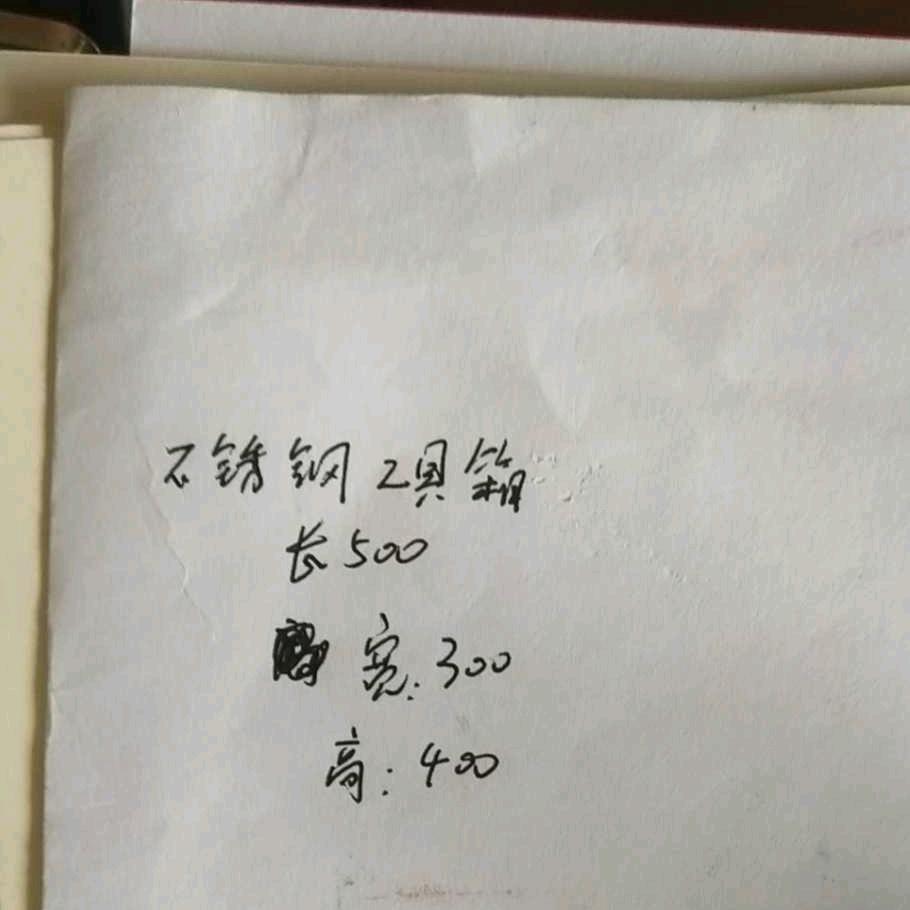 不锈钢工具箱
长500
宽:300
高:400